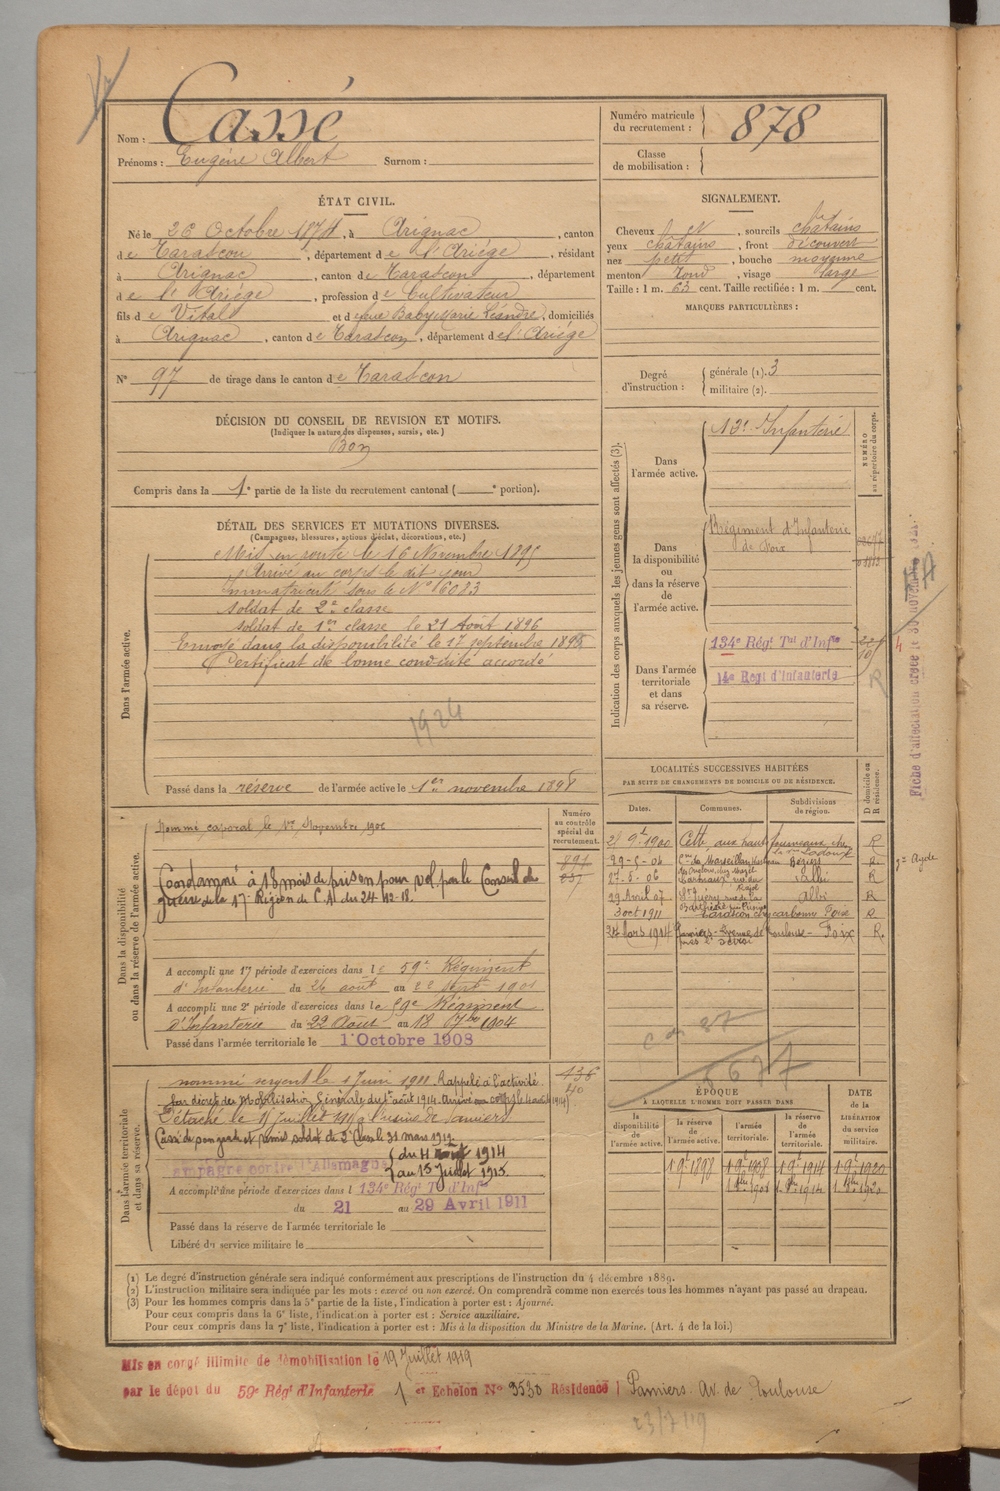 Nom : Cassé
Prénoms : Eugène Albert Surnom :
Numéro matricule du recrutement : 878
Classe de mobilisation :
ÉTAT CIVIL.
Né le 26 Octobre 1874, à Arignac, canton
de Tarascon, département de l'Ariège, résidant
à Arignac, canton de Tarascon, département
de l'Ariège, profession de Cultivateur
fils de Vital et de Baby Marie Léandre, domiciliés
à Arignac, canton de Tarascon, département de l'Ariège
N° 97 de tirage dans le canton de Tarascon
SIGNALEMENT.
Cheveux ct N, sourcils châtains
yeux châtains, front découvert
nez petit, bouche moyenne
menton rond, visage large
Taille : 1 m. 63 cent. Taille rectifiée : 1 m. cent.
MARQUES PARTICULIÈRES :
Degré d'instruction : générale (1). 3
militaire (2).
DÉCISION DU CONSEIL DE REVISION ET MOTIFS.
(Indiquer la nature des dispenses, sursis, etc.)
Bon
Compris dans la 1e partie de la liste du recrutement cantonal ( e portion).
DÉTAIL DES SERVICES ET MUTATIONS DIVERSES.
(Campagnes, blessures, actions d'éclat, décorations, etc.)
Dans l'armée active.
Mis en route le 16 Novembre 1895
Arrivé au corps le dit jour
immatriculé sous le N° 6083
soldat de 2e classe
soldat de 1re classe le 21 Août 1896
Envoyé dans la disponibilité le 17 septembre 1898
Certificat de bonne conduite accordé
1924
Passé dans la réserve de l'armée active le 1er novembre 1898
Indication des corps auxquels les jeunes gens sont affectés (3).
NUMÉRO au répertoire du corps.
Dans l'armée active.
13e Infanterie
Dans la disponibilité ou dans la réserve de l'armée active.
Régiment d'Infanterie
de Foix
Dans l'armée territoriale et dans sa réserve.
134e Régt Tal d'Infie
14e Regt d'Infanterie
R
Fiche d'affectation créée le 30 novembre 1921.
Dans la disponibilité ou dans la réserve de l'armée active.
Numéro au contrôle spécial du recrutement.
Nommé caporal le 1er Novembre 1902
Condamné à 18 mois de prison pour vol par le Conseil de
guerre de la 17e Région de C.A. du 24-12-18.
A accompli une 1re période d'exercices dans le 59e Régiment
d'Infanterie du 26 août au 22 sept 1901
A accompli une 2e période d'exercices dans le 59e Régiment
d'Infanterie du 22 Août au 18 7bre 1904
Passé dans l'armée territoriale le 1er Octobre 1908
LOCALITÉS SUCCESSIVES HABITÉES
PAR SUITE DE CHANGEMENTS DE DOMICILE OU DE RÉSIDENCE.
Dates. Communes. Subdivisions de région. D domicile ou R résidence.
28 9t 1900 Cette, aux haut fourneaux R
29-5-06 Marseillan Béziers R
27-8-06 Albi R
29 Avril 07 Albi R
3 oct 1911 Tarascon Foix R
24 Mars 1914 Pamiers - Avenue de Toulouse - Foix R.
Dans l'armée territoriale et dans sa réserve.
nommé sergent le 1 Juin 1911. Rappelé à l'activité
par décret de Mobilisation Générale du 1er août 1914. Arrivé au corps le 4 août 1914
Détaché le 15 Juillet 1915 à l'usine de Pamiers
Cassé de son grade et remis soldat de 2e Classe le 31 mars 1919.
Campagne contre l'Allemagne du 4 août 1914
au 15 Juillet 1915
A accompli une période d'exercices dans l 134e Régt Tal d'Infie
du 21 au 29 Avril 1911
Passé dans la réserve de l'armée territoriale le
Libéré du service militaire le
ÉPOQUE
À LAQUELLE L'HOMME DOIT PASSER DANS
DATE de la LIBÉRATION du service militaire.
la disponibilité de l'armée active. la réserve de l'armée active. l'armée territoriale. la réserve de l'armée territoriale.
1 9t 1898 1 9t 1908 1 9t 1914 1 9t 1920
(1) Le degré d'instruction générale sera indiqué conformément aux prescriptions de l'instruction du 4 décembre 1889.
(2) L'instruction militaire sera indiquée par les mots : exercé ou non exercé. On comprendra comme non exercés tous les hommes n'ayant pas passé au drapeau.
(3) Pour les hommes compris dans la 5e partie de la liste, l'indication à porter est : Ajourné.
Pour ceux compris dans la 6e liste, l'indication à porter est : Service auxiliaire.
Pour ceux compris dans la 7e liste, l'indication à porter est : Mis à la disposition du Ministre de la Marine. (Art. 4 de la loi.)
Mis en congé illimité de démobilisation le 19 Juillet 1919
par le dépôt du 59e Régt d'Infanterie 1er Echelon N° 9530 Résidence Pamiers Av. de Toulouse
23/7/19